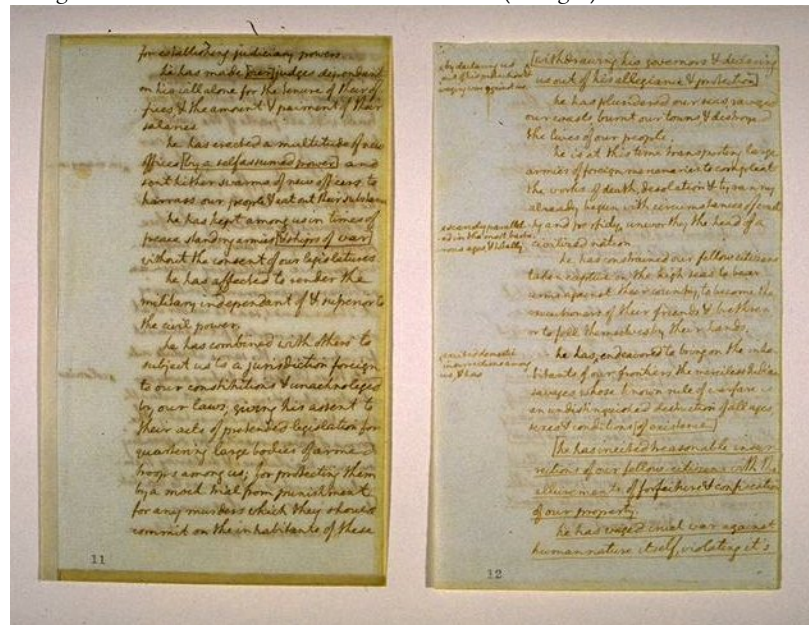 for establishing judiciary powers.
he has made [our] judges dependant
on his will alone for the tenure of their of-
fices & the amount & paiment of their
salaries
he has erected a multitude of new
offices [by a self assumed power] and
sent hither swarms of new officers to
harrass our people & eat out their substance
he has kept among us in times of
peace standing armies [& ships of war]
without the consent of our legislatures.
he has affected to render the
military independent of & superior to
the civil power.
he has combined with others to
subject us to a jurisdiction foreign
to our constitutions & unacknoleged
by our laws, giving his assent to
their acts of pretended legislation for
quartering large bodies of armed
troops among us; for protecting them
by a mock trial from punishment
for any murders which they should
commit on the inhabitants of these
11
by declaring us
out of his protection &
waging war against us
[withdrawing his governors & declaring
us out of his allegiance & protection]
he has plundered our seas, ravaged
our coasts burnt our towns & destroyed
the lives of our people.
he is at this time transporting large
armies of foreign mercenaries to compleat
the works of death, desolation & tyranny
already begun with circumstances of cruel-
scarcely parallel-
ed in the most barba-
rous ages & totally
ty and perfidy unworthy the head of a
civilized nation
he has constrained our fellow citizens
taken captive on the high seas to bear
arms against their country, to become the
executioners of their friends & brethren
or to fall themselves by their hands.
excited domestic
insurrections among
us & has
he has endeavored to bring on the inha-
bitants of our frontiers the merciless Indian
savages whose known rule of warfare is
an undistinguished destruction of all ages,
sexes & conditions [of existence]
[he has incited treasonable insur-
rections of our fellow citizens with the
allurements of forfeiture & confiscation
of our property.
he has waged cruel war against
human nature itself, violating it's
12